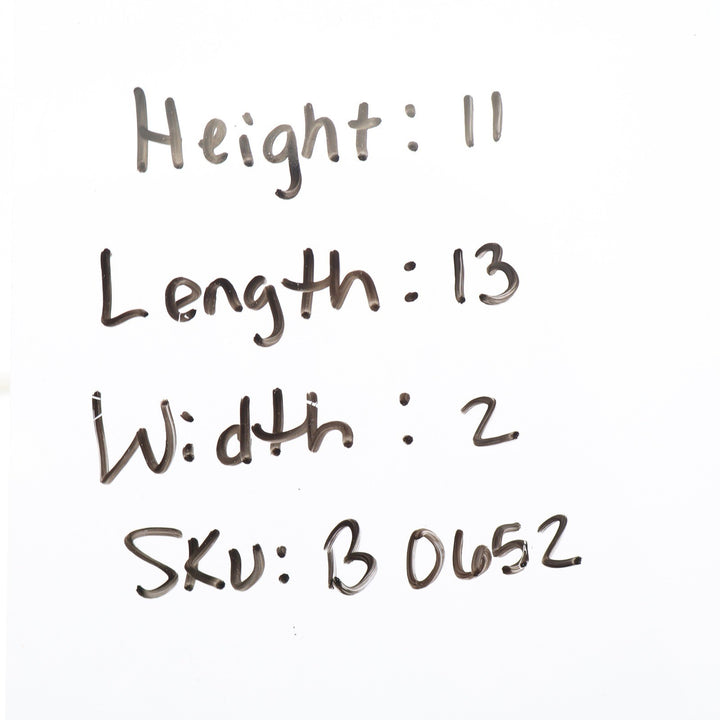 Height: 11
Length: 13
Width: 2
SKU: B 0652